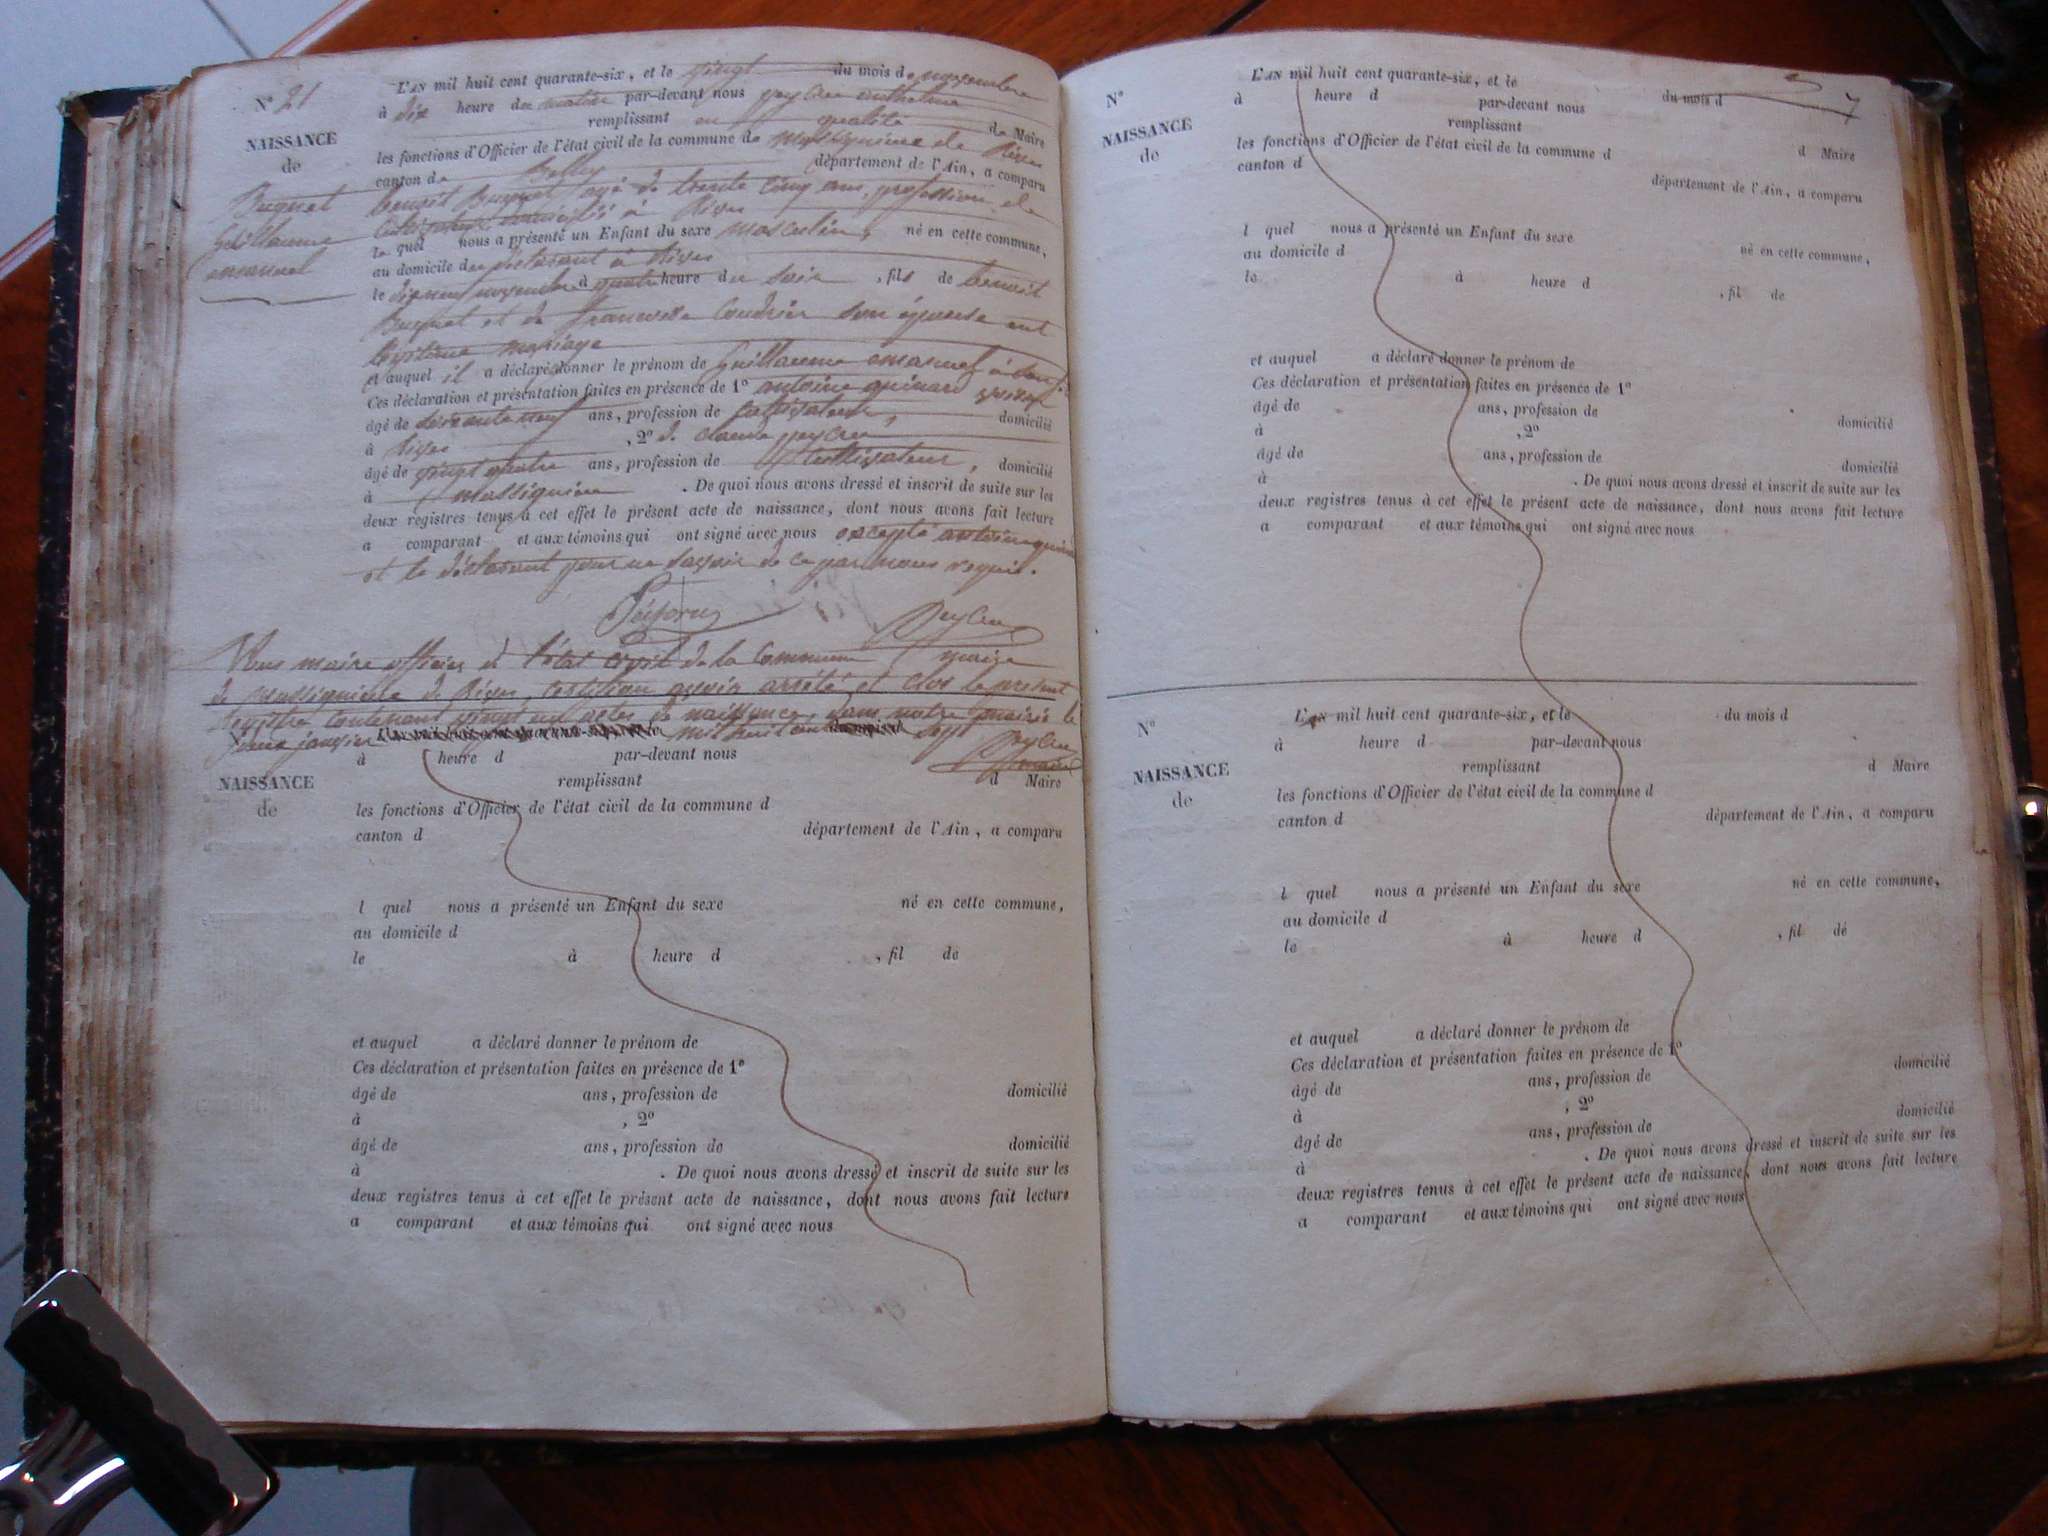 N° 21
NAISSANCE
de
Buquet
Guillaume
emanuel
L'AN mil huit cent quarante-six, et le vingt du mois de novembre
à dix heure du matin par-devant nous peylieu anthelme
remplissant en qualité de Maire
les fonctions d'Officier de l'état civil de la commune de massignieu de Rives
canton de Belley département de l'Ain, a comparu
benoit Buquet agé de trente cinq ans, profession de
cultivateur domicilié à Rives
le quel nous a présenté un Enfant du sexe masculin, né en cette commune,
au domicile du déclarant à Rives
le dixneuf novembre à quatre heure du soir, fils de benoit
Buquet et de francoise Coudrier son épouse en
légitime mariage
et auquel il a déclaré donner le prénom de Guillaume emanuel
Ces déclaration et présentation faites en présence de 1° antoine
âgé de ans, profession de cultivateur, domicilié
à Rives, 2° de claude peylieu,
âgé de vingt quatre ans, profession de cultivateur, domicilié
à massignieu. De quoi nous avons dressé et inscrit de suite sur les
deux registres tenus à cet effet le présent acte de naissance, dont nous avons fait lecture
a comparant et aux témoins qui ont signé avec nous excepté antoine
et le déclarant pour ne savoir de ce par nous requis.
Peylieu
maire
Nous maire officier de l'état civil de la Commune
de massignieu de Rives, certifions avoir arrêté et clos le present
registre contenant vingt un actes de naissance, dans notre mairie le
janvier mil huit cent quarante sept
Peylieu
maire
NAISSANCE
de
à heure d par-devant nous
remplissant d Maire
les fonctions d'Officier de l'état civil de la commune d
canton d département de l'Ain, a comparu
l quel nous a présenté un Enfant du sexe né en cette commune,
au domicile d
le à heure d , fil de
et auquel a déclaré donner le prénom de
Ces déclaration et présentation faites en présence de 1°
âgé de ans, profession de domicilié
à , 2°
âgé de ans, profession de domicilié
à . De quoi nous avons dressé et inscrit de suite sur les
deux registres tenus à cet effet le présent acte de naissance, dont nous avons fait lecture
a comparant et aux témoins qui ont signé avec nous
7
N°
NAISSANCE
de
L'AN mil huit cent quarante-six, et le du mois d
à heure d par-devant nous
remplissant d Maire
les fonctions d'Officier de l'état civil de la commune d
canton d département de l'Ain, a comparu
l quel nous a présenté un Enfant du sexe né en cette commune,
au domicile d
le à heure d , fil de
et auquel a déclaré donner le prénom de
Ces déclaration et présentation faites en présence de 1°
âgé de ans, profession de domicilié
à , 2°
âgé de ans, profession de domicilié
à . De quoi nous avons dressé et inscrit de suite sur les
deux registres tenus à cet effet le présent acte de naissance, dont nous avons fait lecture
a comparant et aux témoins qui ont signé avec nous
N°
NAISSANCE
de
L'AN mil huit cent quarante-six, et le du mois d
à heure d par-devant nous
remplissant d Maire
les fonctions d'Officier de l'état civil de la commune d
canton d département de l'Ain, a comparu
l quel nous a présenté un Enfant du sexe né en cette commune,
au domicile d
le à heure d , fil de
et auquel a déclaré donner le prénom de
Ces déclaration et présentation faites en présence de 1°
âgé de ans, profession de domicilié
à , 2°
âgé de ans, profession de domicilié
à . De quoi nous avons dressé et inscrit de suite sur les
deux registres tenus à cet effet le présent acte de naissance, dont nous avons fait lecture
a comparant et aux témoins qui ont signé avec nous